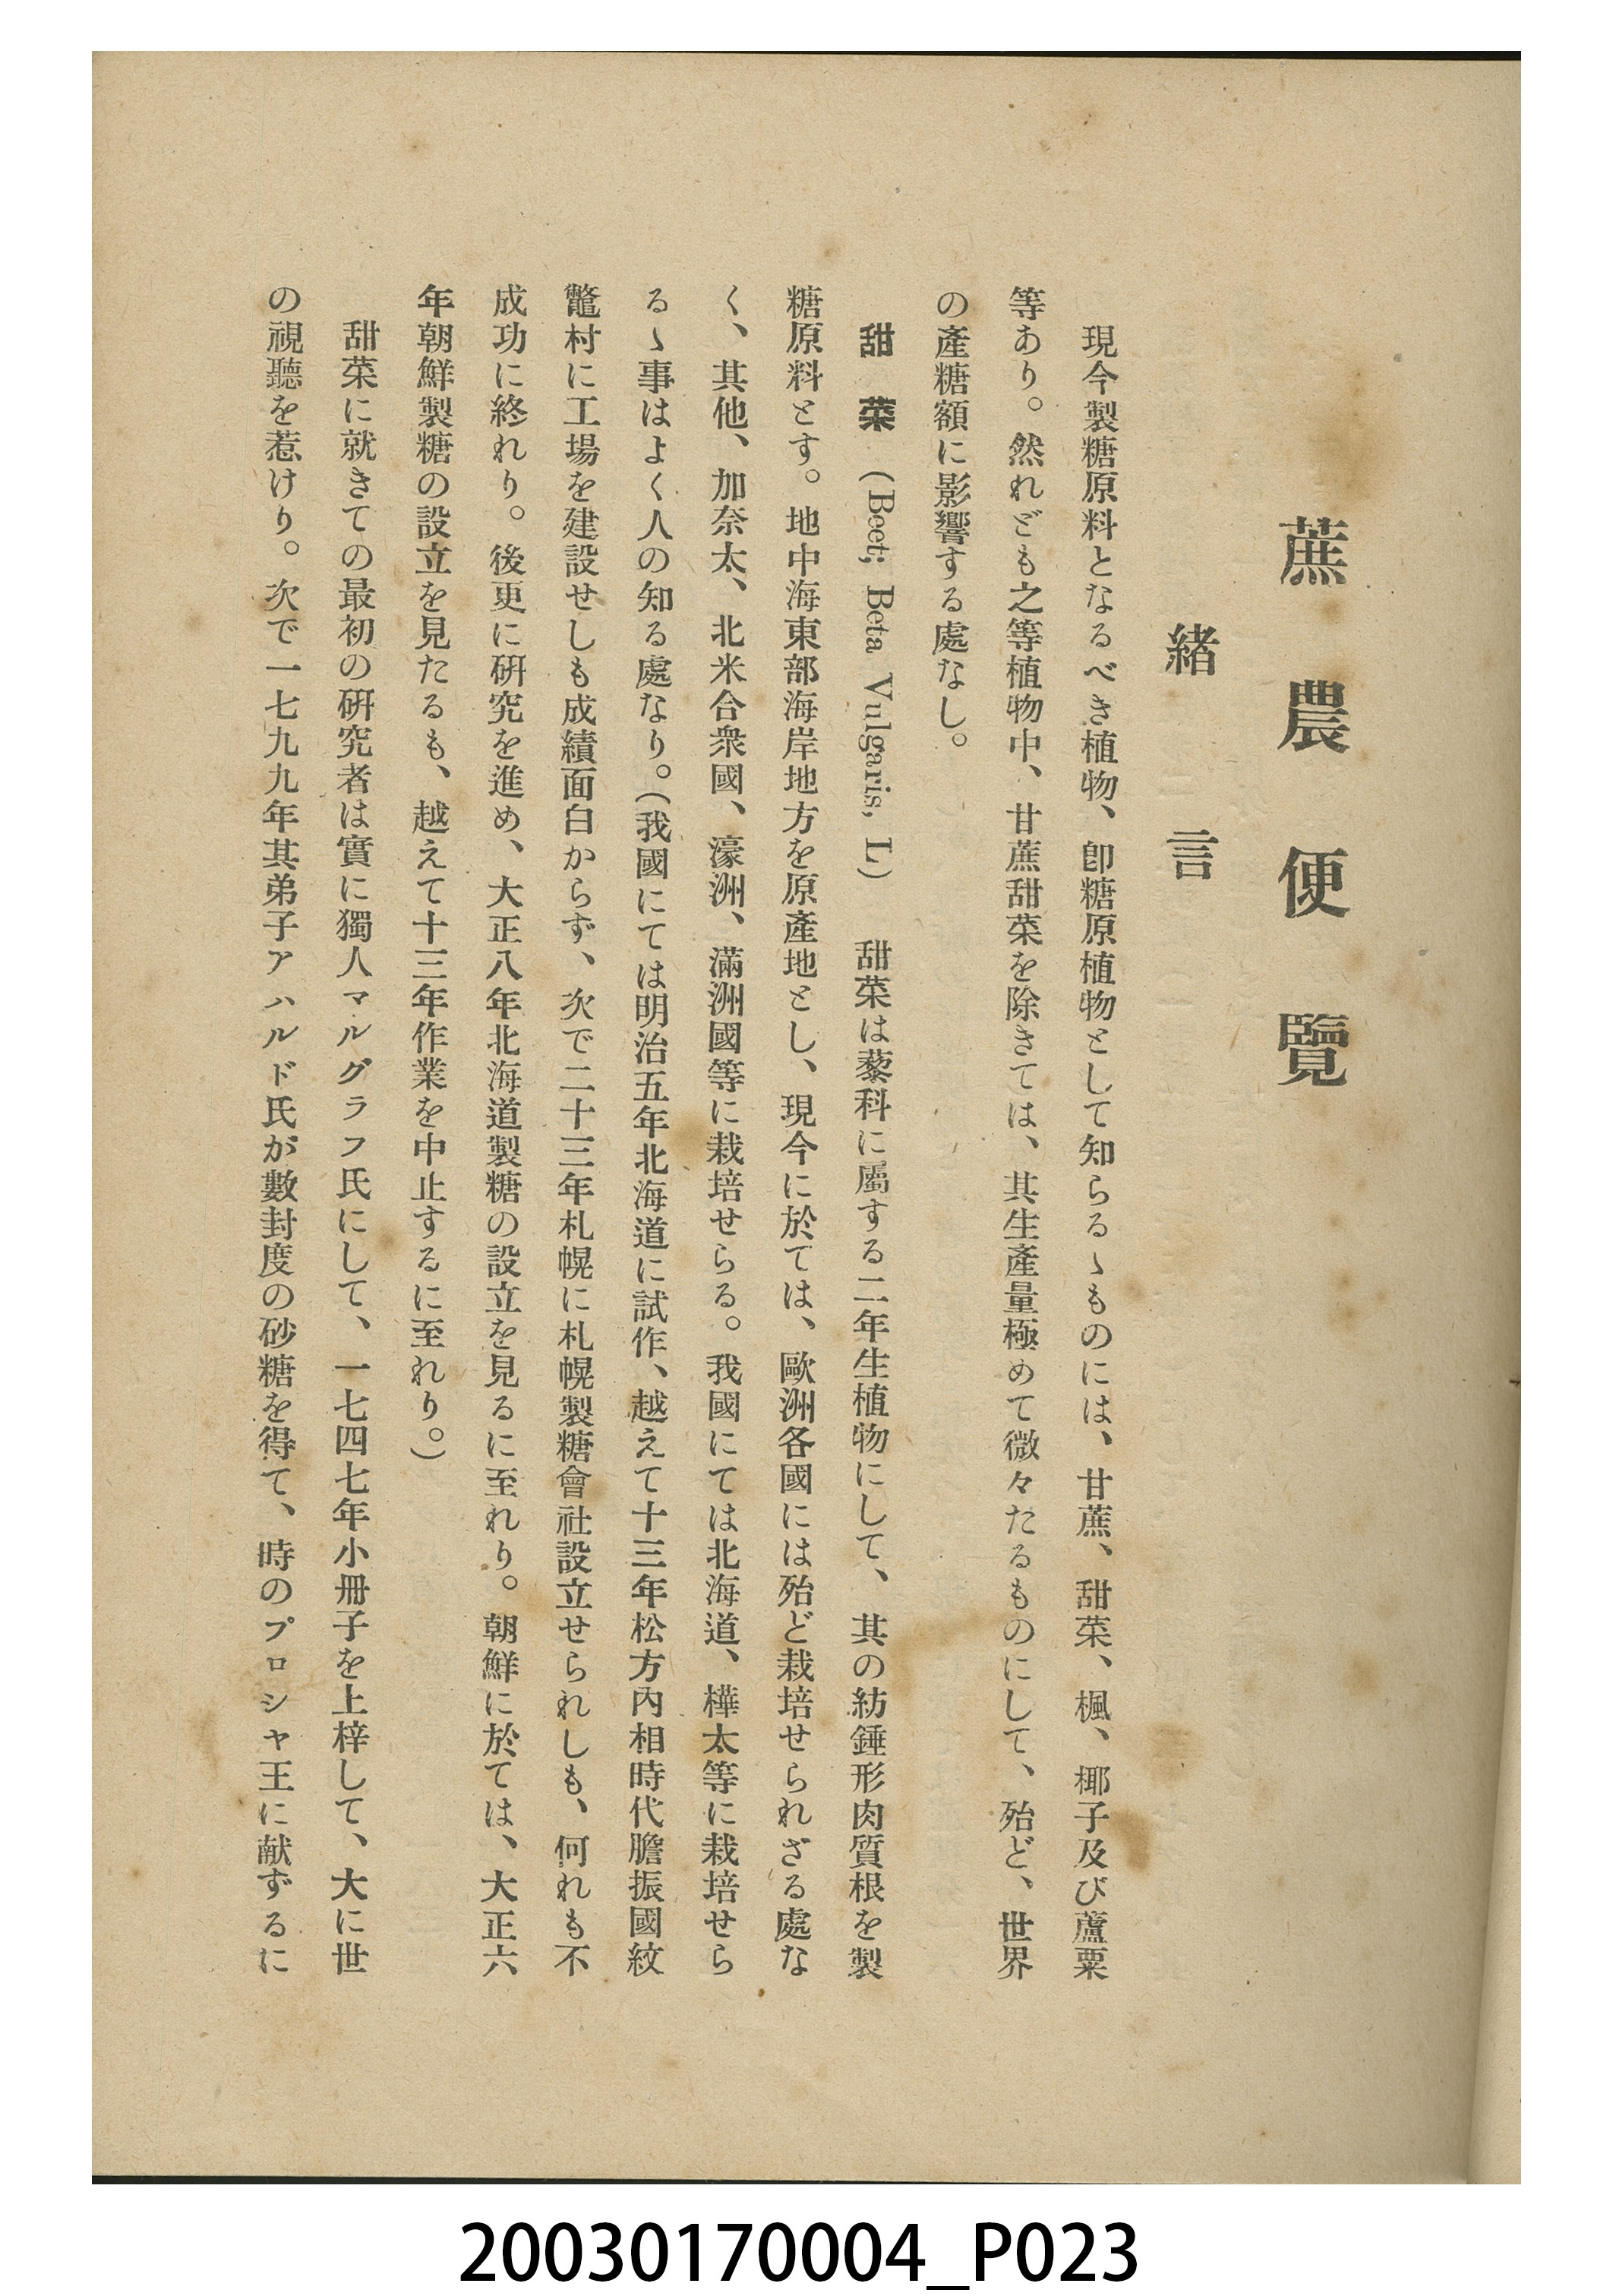 蔗農便覽
緒言
現今製糖原料となるべき植物、卽糖原植物として知らるゝものには、甘蔗、甜菜、楓、椰子及び蘆粟
等あり。然れども之等植物中、甘蔗甜菜を除きては、其生產量極めて微々たるものにして、殆ど、世界
の產糖額に影響する處なし。
甜菜 (Beet; Beta Vulgaris, L) 甜菜は藜科に屬する二年生植物にして、其の紡錘形肉質根を製
糖原料とす。地中海東部海岸地方を原產地とし、現今に於ては、歐洲各國には殆ど栽培せられざる處な
く、其他、加奈太、北米合衆國、濠洲、滿洲國等に栽培せらる。我國にては北海道、樺太等に栽培せら
るゝ事はよく人の知る處なり。(我國にては明治五年北海道に試作、越えて十三年松方內相時代膽振國紋
鼈村に工場を建設せしも成績面白からず、次で二十三年札幌に札幌製糖會社設立せられしも、何れも不
成功に終れり。後更に硏究を進め、大正八年北海道製糖の設立を見るに至れり。朝鮮に於ては、大正六
年朝鮮製糖の設立を見たるも、越えて十三年作業を中止するに至れり。)
甜菜に就きての最初の硏究者は實に獨人マルグラフ氏にして、一七四七年小冊子を上梓して、大に世
の視聽を惹けり。次で一七九九年其弟子アハルド氏が數封度の砂糖を得て、時のプロシヤ王に献ずるに
20030170004_P023